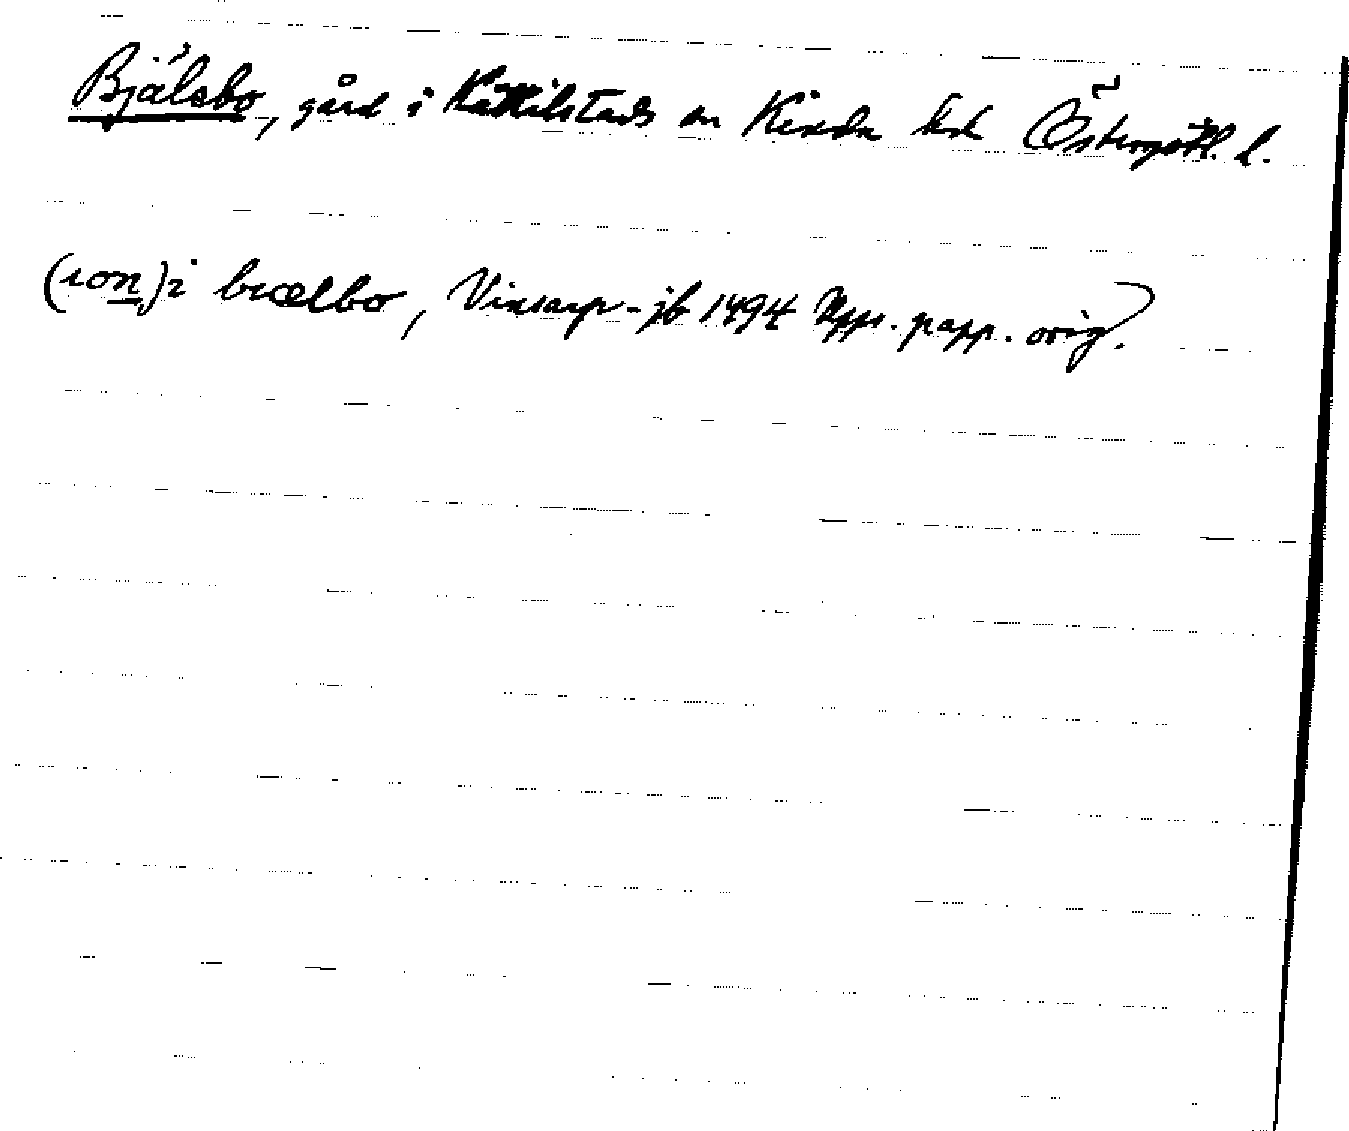 Bjälebo, gård i Kättilstads sn Kinda hd Östergötl. l.
(ion) i biælbo, Vinsarp-jb 1494 Upps. papp. orig.